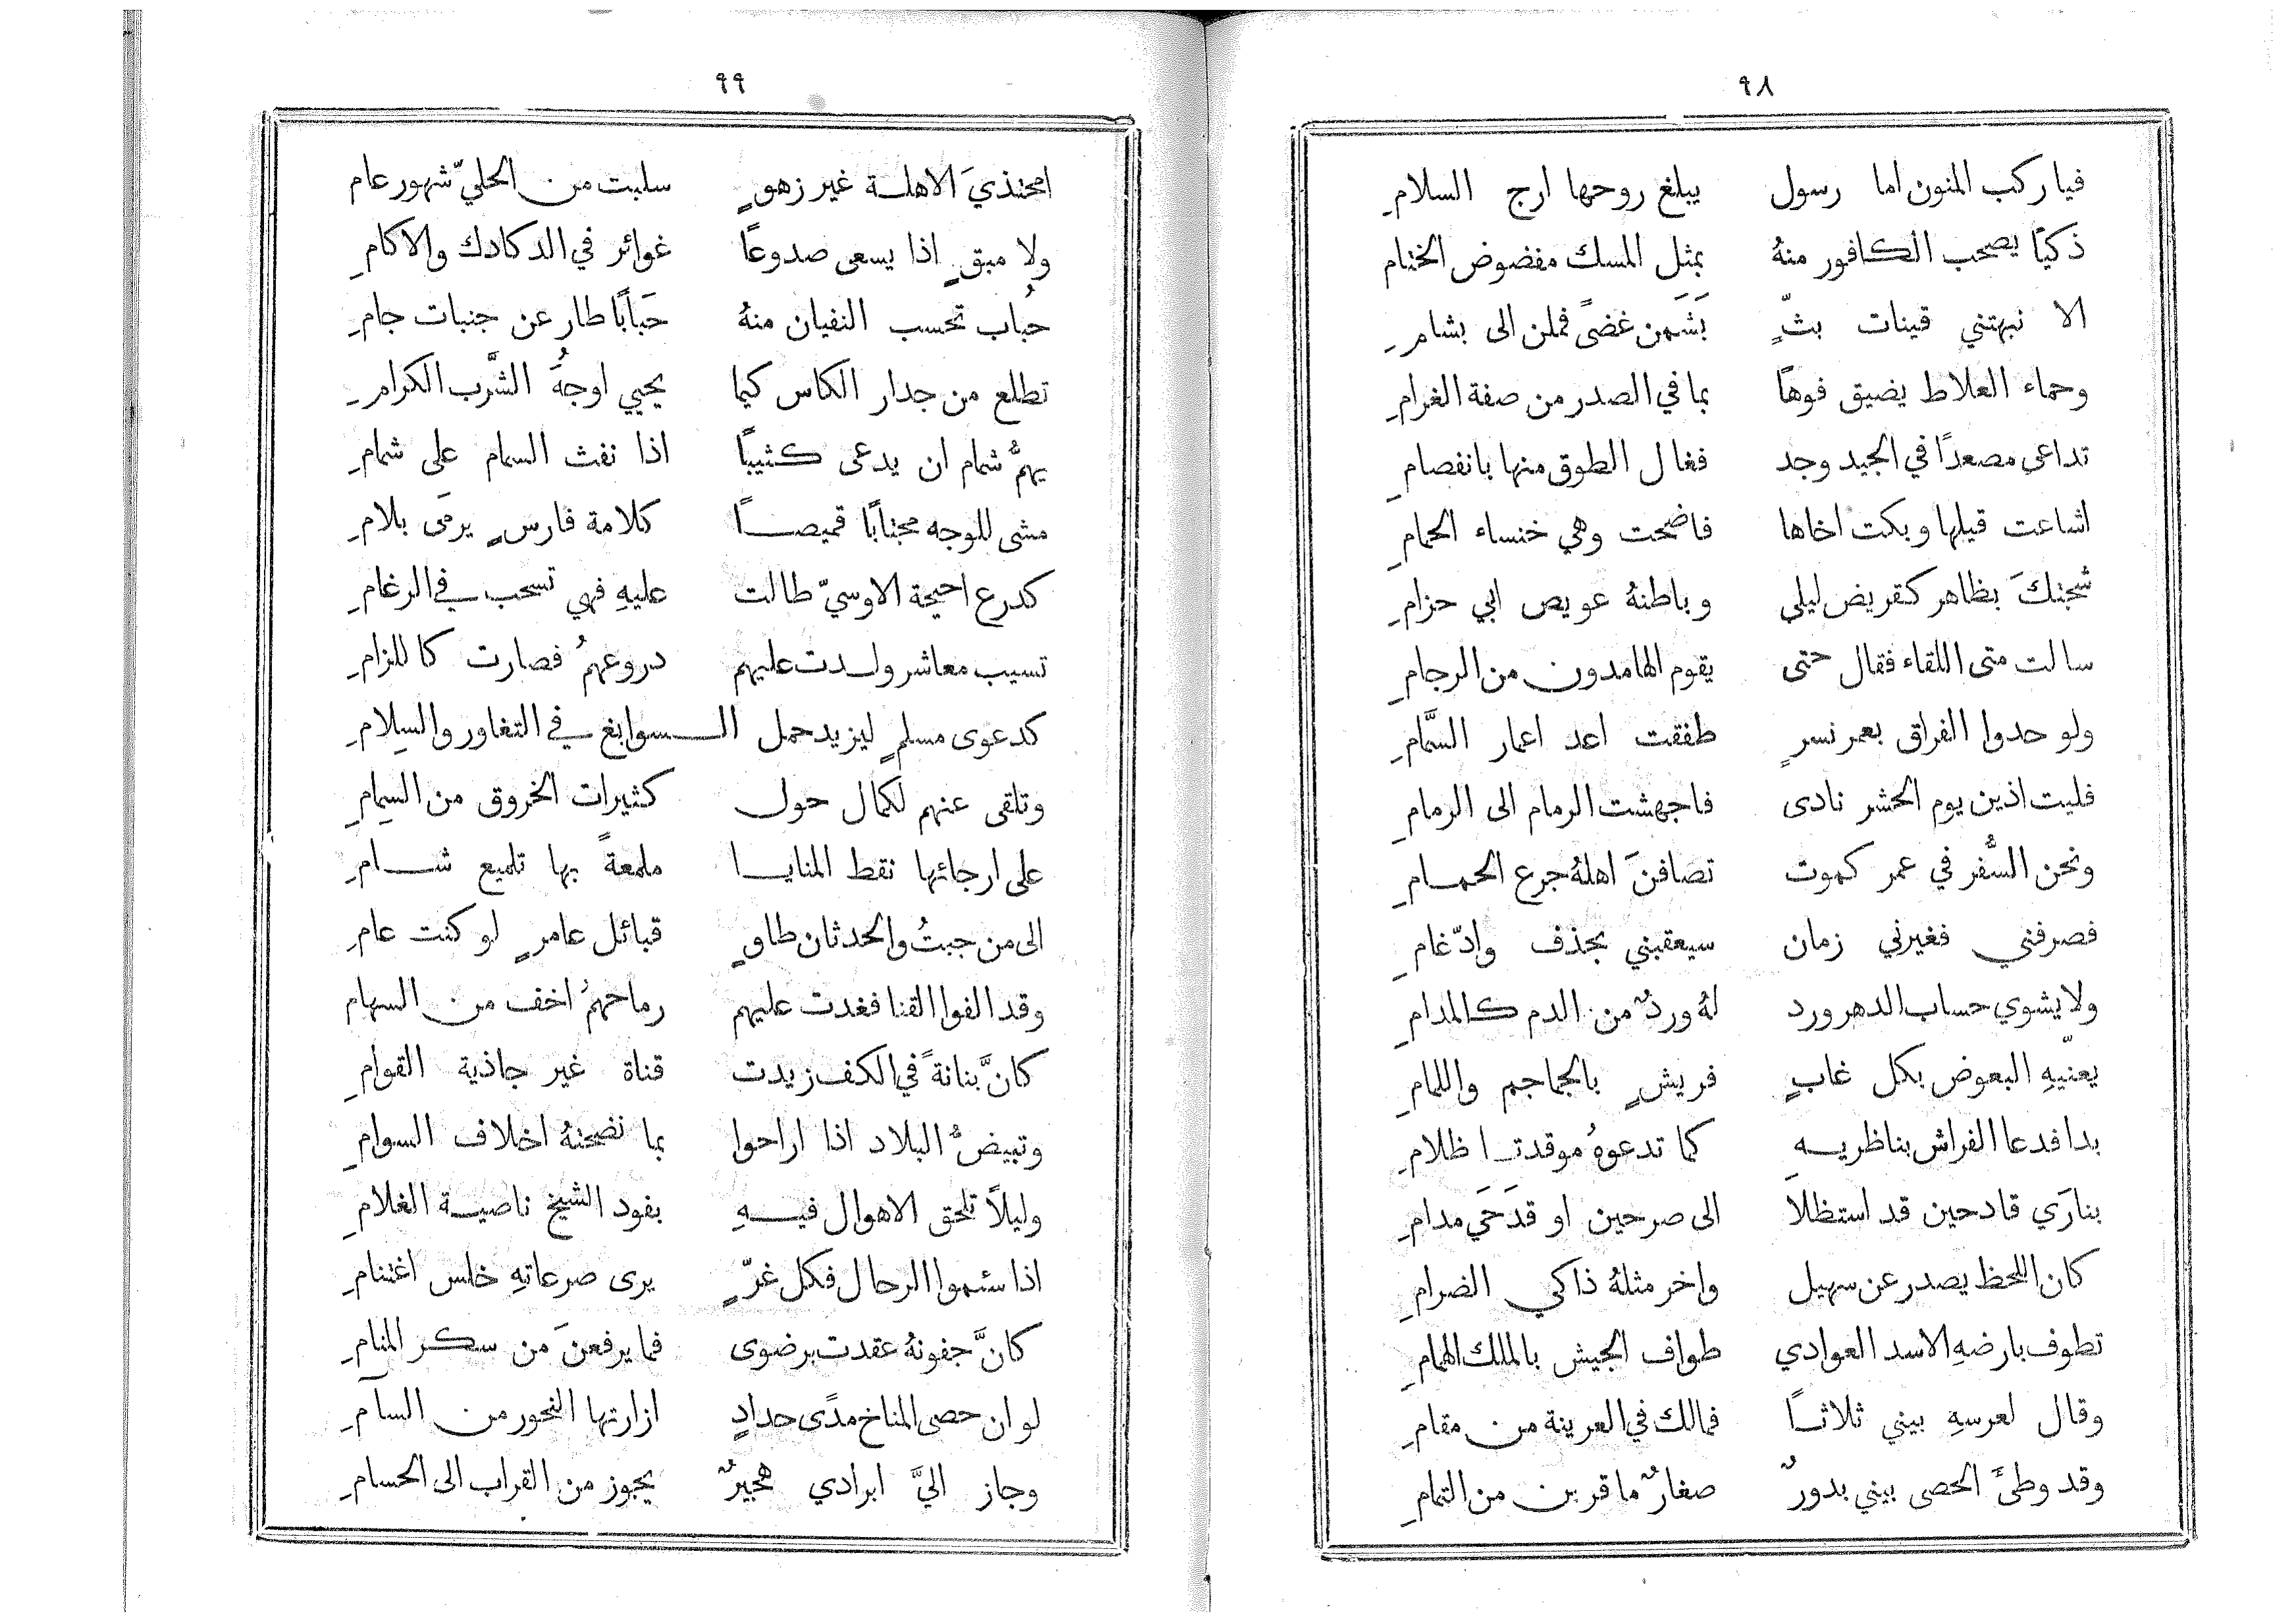 ٩٨
فيا ركب المنون اما رسول يبلغ روحها ارج السلامِ
ذكيًا يصحب الكافور منهُ بمثل المسك مفضوض الختام
الا نبهتني قينات بثٍّ بَشَمن غضىً فملن الى بشامِ
وحماء العلاط يضيق فوهًا بما في الصدر من صفة الغرامِ
تداعى مصعدًا في الجيد وجد فغال الطوق منها بانفصامِ
اشاعت قيلها وبكت اخاها فاضحت وهي خنساء الحمامِ
شجتنكَ بظاهر كقريض ليلى وباطنهُ عويص ابي حزامِ
سالت متى اللقاء فقال حتى يقوم الهامدون من الرجامِ
ولو حدوا الفراق بعمر نسرٍ طفقت اعد اعمار السَّمامِ
فليت اذين يوم الحشر نادى فاجهشت الرمام الى الرمامِ
ونحن السَّفر في عمر كموت تصافنَ اهلهُ جرع الحمامِ
فصرفني فغيرني زمان سيعقبني بحذف وادّغامِ
ولا يشوي حساب الدهر ورد لهُ وردٌ من الدم كالمدامِ
يعنّيهِ البعوض بكل غابٍ فريشٍ بالجماجم واللمامِ
بدا فدعا الفراش بناظريهِ كما تدعوهُ موقدتا ظلامِ
بنارَي قادحين قد استظلا الى صرحين او قدَحَي مدامِ
كان اللحظ يصدر عن سهيل واخر مثلهُ ذاكي الضرامِ
تطوف بارضهِ الاسد العوادي طواف الجيش بالملك الهمامِ
وقال لعرسهِ بيني ثلاثًا فمالك في العرينة من مقامِ
وقد وطئَ الحصى بيني بدورٌ صغارٌ ما قربن من التمامِ
٩٩
امحتذيَ الاهلة غير زهوٍ سلبت من الحليّ شهور عام
ولا مبقٍ اذا يسعى صدوعًا غوائر في الدكادك والاكامِ
حُباب تحسب النفيان منهُ حَبابًا طار عن جنبات جامِ
تطلع من جدار الكاس كيما يحيي اوجهُ الشَّرب الكرامِ
يهمُّ شمام ان يدعى كثيبًا اذا نفث السمام على شمامِ
مشى للوجه مجتابًا قميصًا كلامة فارسٍ يرمَى بلامِ
كدرع احيحة الاوسيّ طالت عليهِ فهي تسحب في الرغامِ
تسيب معاشر ولدت عليهم دروعهمُ فصارت كاللزامِ
كدعوى مسلمٍ ليزيد حمل السوابغ في التغاور والسِلامِ
وتلقى عنهم لكمال حول كثيرات الخروق من السِمامِ
على ارجائها نقط المنايا ملمعةً بها تلميع شامِ
الى من جبتُ والحدثان طاوٍ قبائل عامرٍ لو كنت عامِ
وقد الفوا القنا فغدت عليهم رماحهمُ اخف من السهام
كانَّ بنانةً في الكف زيدت قناة غير جاذية القوامِ
وتبيضُّ البلاد اذا اراحوا بما نضحتهُ اخلاف السوامِ
وليلاً تلحق الاهوال فيهِ بفود الشيخ ناصية الغلامِ
اذا سئموا الرحال فكل غرٍّ يرى صرعاتهِ خلس اغتنامِ
كانَّ جفونهُ عقدت برضوى فما يرفعنَ من سكر المنامِ
لو ان حصى المناخ مدًى حدادٍ ازارتها النحور من السآمِ
وجاز اليَّ ابرادي هجيرٌ يجوز من القراب الى الحسامِ